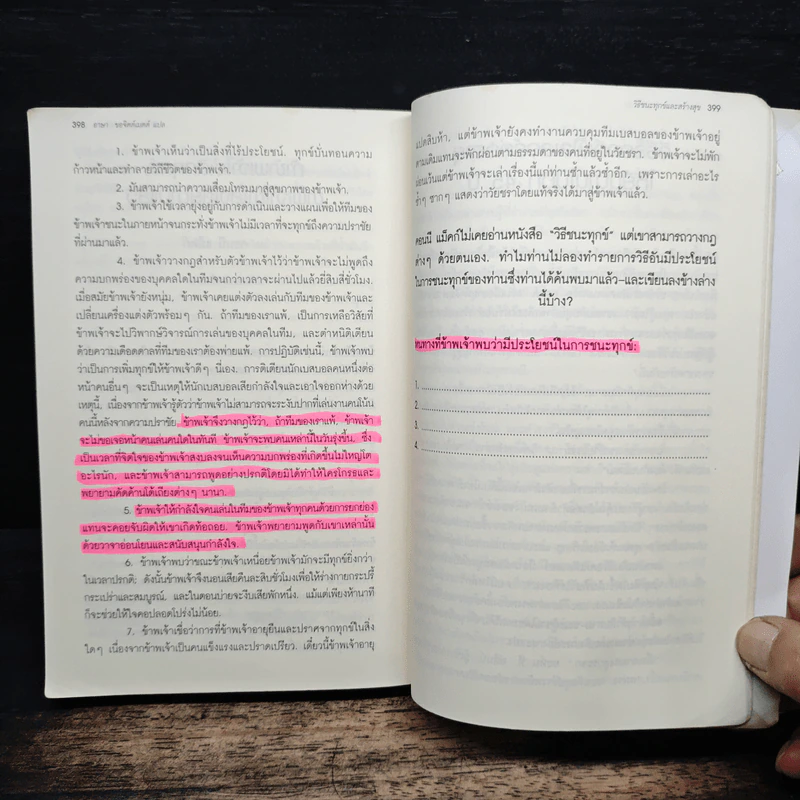 398 อาษา ขอจิตต์เมตต์ แปล
1. ข้าพเจ้าเห็นว่าเป็นสิ่งที่ไร้ประโยชน์. ทุกข์บั่นทอนความ
ก้าวหน้าและทำลายวิถีชีวิตของข้าพเจ้า.
2. มันสามารถนำความเสื่อมโทรมมาสู่สุขภาพของข้าพเจ้า.
3. ข้าพเจ้าใช้เวลายุ่งอยู่กับการดำเนินและวางแผนเพื่อให้ทีมของ
ข้าพเจ้าชนะในภายหน้าจนกระทั่งข้าพเจ้าไม่มีเวลาที่จะทุกข์ถึงความปราชัย
ที่ผ่านมาแล้ว.
4. ข้าพเจ้าวางกฎสำหรับตัวข้าพเจ้าไว้ว่าข้าพเจ้าจะไม่พูดถึง
ความบกพร่องของบุคคลใดในทีมจนกว่าเวลาจะผ่านไปแล้วยี่สิบสี่ชั่วโมง.
เมื่อสมัยข้าพเจ้ายังหนุ่ม, ข้าพเจ้าเคยแต่งตัวลงเล่นกับทีมของข้าพเจ้าและ
เปลี่ยนเครื่องแต่งตัวพร้อมๆ กัน. ถ้าทีมของเราแพ้, เป็นการเหลือวิสัยที่
ข้าพเจ้าจะไปวิพากษ์วิจารณ์การเล่นของบุคคลในทีม, และตำหนิติเตียน
ด้วยความเดือดดาลที่ทีมของเราต้องพ่ายแพ้. การปฏิบัติเช่นนี้, ข้าพเจ้าพบ
ว่าเป็นการเพิ่มทุกข์ให้ข้าพเจ้าดีๆ นี่เอง. การติเตียนนักเบสบอลคนหนึ่งต่อ
หน้าคนอื่นๆ จะเป็นเหตุให้นักเบสบอลเสียกำลังใจและเอาใจออกห่างด้วย
เหตุนี้, เนื่องจากข้าพเจ้ารู้ตัวว่าข้าพเจ้าไม่สามารถจะระงับปากที่เล่นงานคนโน้น
คนนี้หลังจากความปราชัย, ข้าพเจ้าจึงวางกฎไว้ว่า, ถ้าทีมของเราแพ้, ข้าพเจ้า
จะไม่ขอเจอหน้าคนเล่นคนใดในทันที ข้าพเจ้าจะพบคนเหล่านี้ในวันรุ่งขึ้น. ซึ่ง
เป็นเวลาที่จิตใจของข้าพเจ้าสงบลงจนเห็นความบกพร่องที่เกิดขึ้นไม่ใหญ่โต
อะไรนัก, และข้าพเจ้าสามารถพูดอย่างปรกติโดยมิได้ทำให้ใครโกรธและ
พยายามคัดค้านโต้เถียงต่างๆ นานา.
5. ข้าพเจ้าให้กำลังใจคนเล่นในทีมของข้าพเจ้าทุกคนด้วยการยกยอง
แทนจะคอยจับผิดให้เขาเกิดท้อถอย. ข้าพเจ้าพยายามพูดกับเขาเหล่านั้น
ด้วยวาจาอ่อนโยนและสนับสนุนกำลังใจ.
6. ข้าพเจ้าพบว่าขณะข้าพเจ้าเหนื่อยข้าพเจ้ามักจะมีทุกข์ยิ่งกว่า
ในเวลาปรกติ; ดังนั้นข้าพเจ้าจึงนอนเสียคืนละสิบชั่วโมงเพื่อให้ร่างกายกระปรี้
กระเปร่าและสมบูรณ์, และในตอนบ่ายจะงีบเสียพักหนึ่ง, แม้แต่เพียงห้านาที
ก็จะช่วยให้ใจคอปลอดโปร่งไม่น้อย.
7. ข้าพเจ้าเชื่อว่าการที่ข้าพเจ้าอายุยืนและปราศจากทุกข์ในสิ่ง
ใดๆ เนื่องจากข้าพเจ้าเป็นคนแข็งแรงและปราดเปรียว. เดี๋ยวนี้ข้าพเจ้าอายุ
วิธีชนะทุกข์และสร้างสุข 399
แปดสิบห้า, แต่ข้าพเจ้ายังคงทำงานควบคุมทีมเบสบอลของข้าพเจ้าอยู่
ตามเดิมแทนจะพักผ่อนตามธรรมดาของคนที่อยู่ในวัยชรา. ข้าพเจ้าจะไม่พัก
ผ่อนเว้นแต่ข้าพเจ้าจะเล่าเรื่องนี้แก่ท่านซ้ำแล้วซ้ำอีก, เพราะการเล่าอะไร
ซ้ำๆ ซากๆ แสดงว่าวัยชราโดยแท้จริงได้มาสู่ข้าพเจ้าแล้ว.
คอนนี แม็คก์ไม่เคยอ่านหนังสือ "วิธีชนะทุกข์" แต่เขาสามารถวางกฎ
ต่างๆ ด้วยตนเอง. ทำไมท่านไม่ลองทำรายการวิธีอันมีประโยชน์
ในการชนะทุกข์ของท่านซึ่งท่านได้ค้นพบมาแล้ว–และเขียนลงข้างล่าง
นี้บ้าง?
หนทางที่ข้าพเจ้าพบว่ามีประโยชน์ในการชนะทุกข์:
1. ........................................
2. ........................................
3. ........................................
4. ........................................